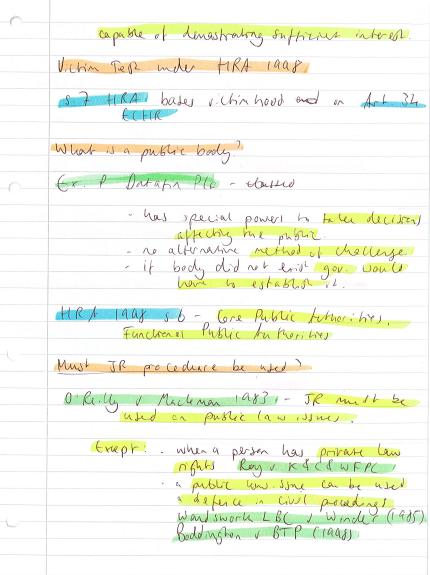 capable of demostrating sufficient interest.
Victim Test under HRA 1998
s 7 HRA bases victimhood on Art 34
ECHR
What is a public body?
Ex. P Datafin Plc -
- has special powers to take decisions
affecting the public.
- no alternative method of challenge
- if body did not exist gov. would
have to establish it.
HRA 1998 s 6 - Core Public Authorities.
Functional Public Authorities
Must JR procedure be used?
O'Reilly v Mackman 1983 - JR must be
used on public law issues.
Except: - when a person has private law
rights Roy v K&C&WFPC
- a public law issue can be used
a defence in civil proceedings
Wandsworth LBC v Winder (1985)
Boddington v BTP (1998)